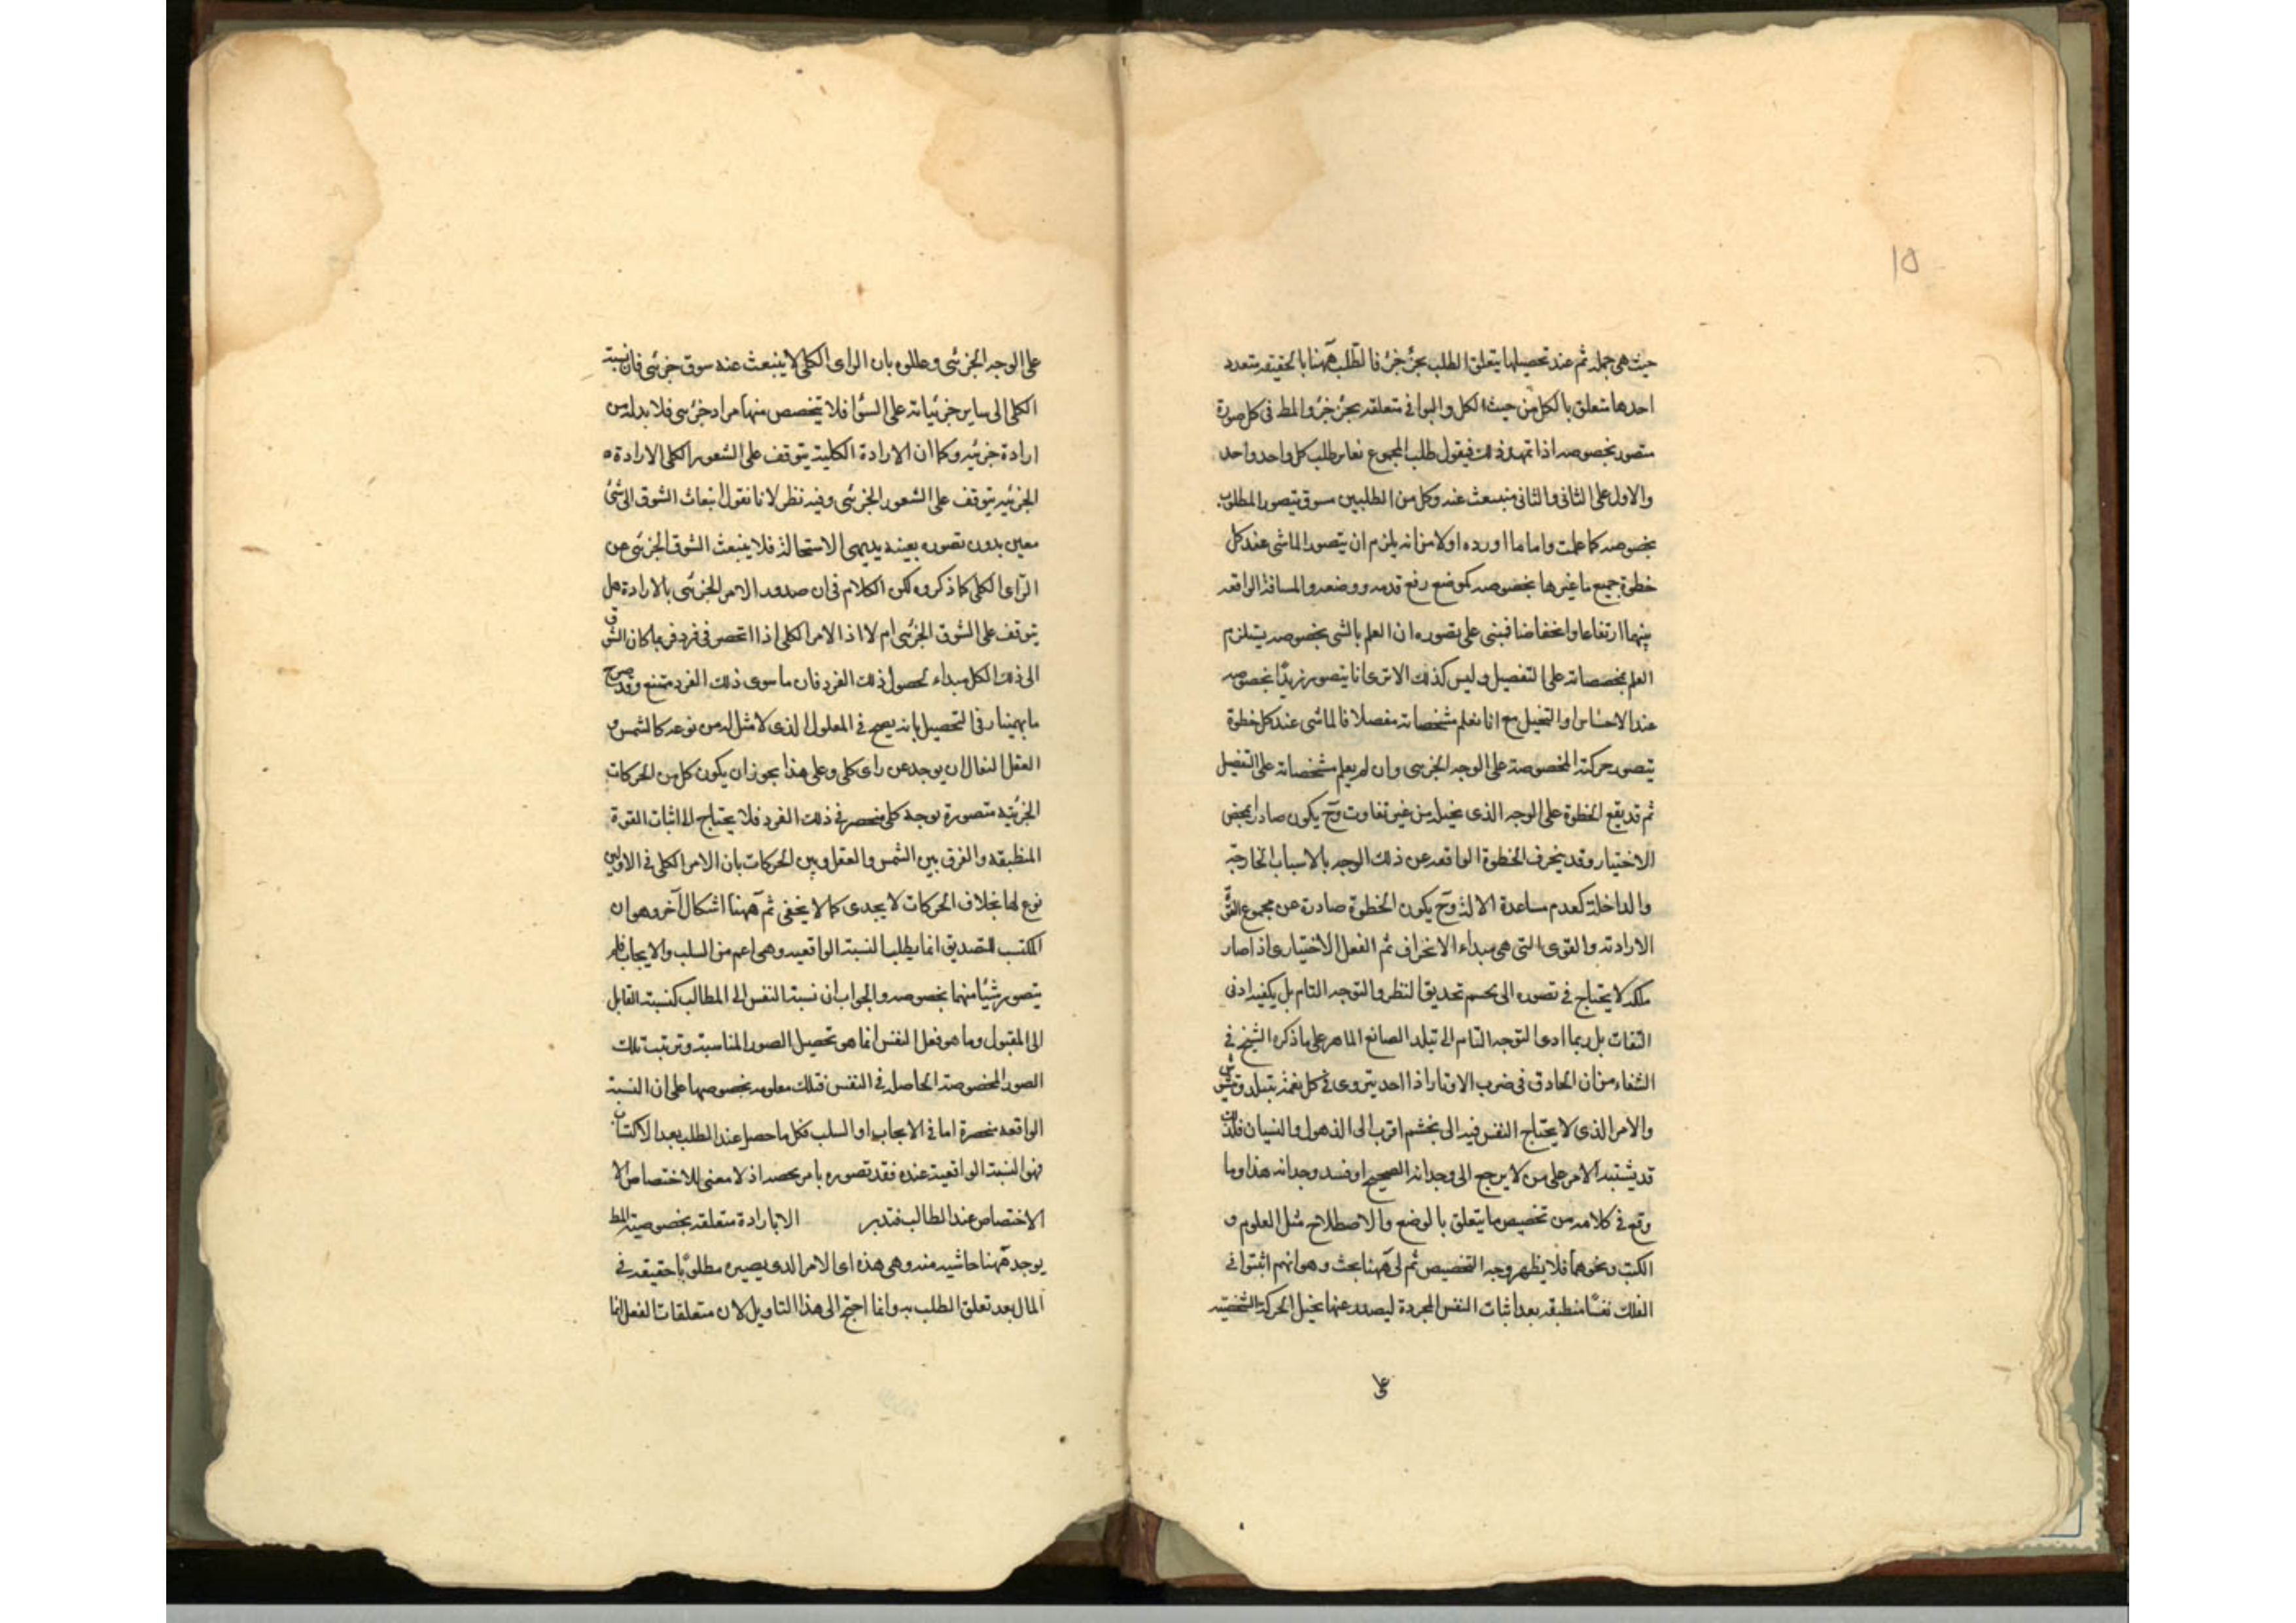 ١٥
حيث هي جملة ثم عند تحصيلها يتعلق الطلب بجزء جزء فالطلب ههنا بالحقيقة متعدد
احدها متعلق بالكل من حيث الكل والبواقي متعلقة بجزء جزء والمط في كل صورة
متصور بخصوصه اذا تمهد ذلك فيقول طلب المجموع نعاير طلب كل واحد واحد
والاول على الثاني والثاني منبعث عنه وكل من الطلبين مسوق بتصور المطلوب
بخصوصه كما علمت واما ما اورده اولا من انه يلزم ان يتصور الماشي عند كل
خطوة جميع ما غيرها بخصوصه كموضع رفع قدمه ووضعه والمسافة الواقعة
بينهما ارتفاعا وانخفاضا فبنى على تصوره ان العلم بالشي بخصوصه يستلزم
العلم بمخصصاته على التفصيل وليس كذلك الا ترى انا نتصور زيدًا بخصوصه
عند الاحساس او التخيل مع انا نعلم مشخصاته مفصلا فالماشي عند كل خطوة
يتصور حركته المخصوصة على الوجه الجزئي وان لم يعلم مشخصاته على التفصيل
ثم قد يقع الخطوة على الوجه الذي يخيل من غير تفاوت وح يكون صادرا بمحض
الاختيار وقد ينحرف الخطوة الواقعة عن ذلك الوجه بالاسباب الخارجة
والداخلة كعدم مساعدة الالة وح يكون الخطوة صادرة عن مجموع القوة
الارادته والقوى التي هي مبداء الانحراف ثم الفعل الاختياري اذا صار
ملكة لا يحتاج في تصوره الى تجسم تحديق النظر والتوجه التام بل يكفيه ادنى
التفات بل ربما ادى التوجه التام الى تبلد الصانع الماهر على ما ذكره الشيخ في
الشفاء من ان الحاذق في ضرب الاوتار اذا احد يتروى في كل نغمة يتبلد ويتشوش
والامر الذي لا يحتاج النفس فيه الى تجشم اقرب الى الذهول والنسيان فلذلك
قد يشتبه الامر على من لا يرجع الى وجدانه الصحيح او فسد وجدانه هذا وما
وقع في كلامه من تخصيص ما يتعلق بالوضع والاصطلاح مثل العلوم و
الكتب ونحوهما فلا يظهر وجه التخصيص ثم لي ههنا بحث وهو انهم اثبتوا في
الفلك نفسًا منطبقة بعد اثبات النفس المجردة ليصدر عنها تخيل الحركة الشخصية
على
على الوجه الجزئي وعللوه بان الراى الكلي لا ينبعث عنه سوق جزئي فان نسبة
الكلي الى ساير جزئياته على السؤا فلا يتخصص منها مراد جزئي فلا بد له من
ارادة جزئيه وكما ان الارادة الكلية يتوقف على الشعور الكلي الارادة
الجزئيه يتوقف على الشعور الجزئي وفيه نظر لانا نقول انبعاث الشوق الى شئ
معين بدون تصوره بعينه بديهي الاستحالة فلا ينبعث الشوق الجزئي من
الرأى الكلي كما ذكروه لكن الكلام في ان صدور الامر الجزئي بالارادة هل
يتوقف على الشوق الجزئي ام لا اذ الامر الكلي اذا انحصر في فرد فربما كان الشوق
الى ذلك الكل مبداء لحصول ذلك الفرد فان ما سوى ذلك الفرد ممتنع وقد صرح
ما بهمنيار في التحصيل بانه يصح في المعلول الذي لا مثل له من نوعه كالشمس و
العقل الفعال ان يوجد عن راى كلي وعلى هذا يجوز ان يكون كل من الحركات
الجزئية متصورة بوجه كلي منحصر في ذلك الفرد فلا يحتاج الى اثبات القوة
المنطبقة والفرق بين الشمس والعقل وبين الحركات بان الامر الكلي في الاولين
نوع لها بخلاف الحركات لا يجدى كما لا يخفى ثم ههنا اشكال آخر وهو ان
المكتسب للتصديق انما يطلب النسبة الواقعيه وهي اعم من السلب والايجاب فلم
يتصور شيئا منهما بخصوصه والجواب ان نسبة النفس الى المطالب كنسبة القابل
الى المقبول وما هو فعل النفس انما هو تحصيل الصور المناسبة وترتيب تلك
الصور المخصوصة الحاصل في النفس فتلك معلومه بخصوصها على ان النسبة
الواقعه منحصرة اما في الايجاب او السلب فكل ما حصل عند الطلب بعد الاكتساب
فهو النسبة الواقعية عنده فقد تصوره بامر يخصه اذ لا معنى للاختصاص الا
الاختصاص عند الطالب فتدبر الا بارادة متعلقه بخصوصية المط
يوجد ههنا حاشيه منه وهي هذه اى الامر الذي يصير مطلوبًا حقيقه في
المال بعد تعلق الطلب به وانما احتج الى هذا التاويل لان متعلقات الفعل انما